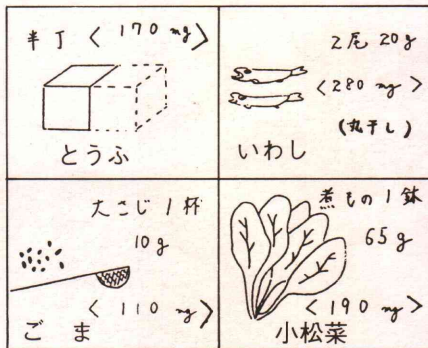 半丁 〈170mg〉
とうふ
2尾 20g
〈280mg〉
(丸干し)
いわし
大さじ1杯
10g
〈110mg〉
ごま
煮もの1鉢
65g
〈190mg〉
小松菜